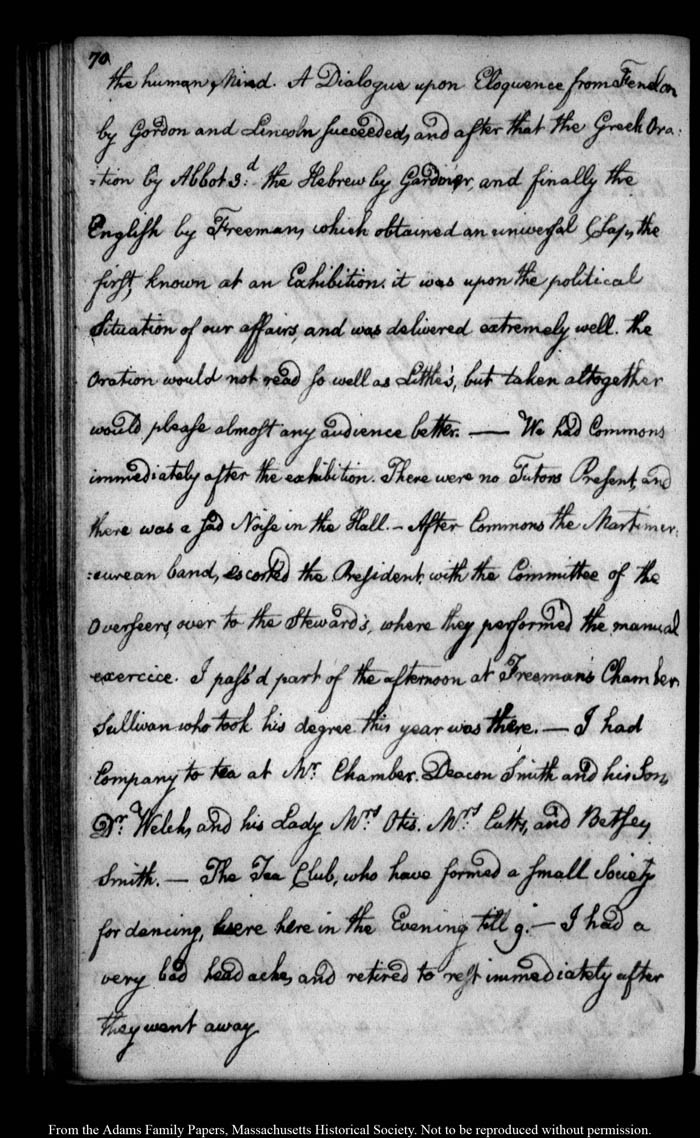 70.
the human, Mind. A Dialogue upon Eloquence from Fenelon
by Gordon and Lincoln succeeded, and after that the Greek Ora:
:tion by Abbot 3:d the Hebrew by Gardner, and finally the
English by Freeman, which obtained an universal Clap, the
first, known at an Exhibition. it was upon the political
Situation of our affairs, and was delivered extremely well. the
Oration would not read so well as Little's, but taken altogether
would please almost any audience better. — We had Commons
immediately after the exhibition. There were no Tutors Present, and
there was a sad Noise in the Hall. – After Commons the Martimer:
:curean band, escorted the President, with the Committee of the
Overseers, over to the Steward's, where they perform'd the manual
exercice. I pass'd part of the afternoon at Freeman's Chamber.
Sullivan who took his degree this year was there. — I had
Company to tea at My Chamber. Deacon Smith and his Son,
Dr. Welch, and his Lady Mrs Otis. Mrs Cutts, and Betsey
Smith. — The Tea Club, who have formed a small Society
for dancing, were here in the Evening till 9. – I had a
very bad head ache, and retired to rest immediately after
they went away
From the Adams Family Papers, Massachusetts Historical Society. Not to be reproduced without permission.